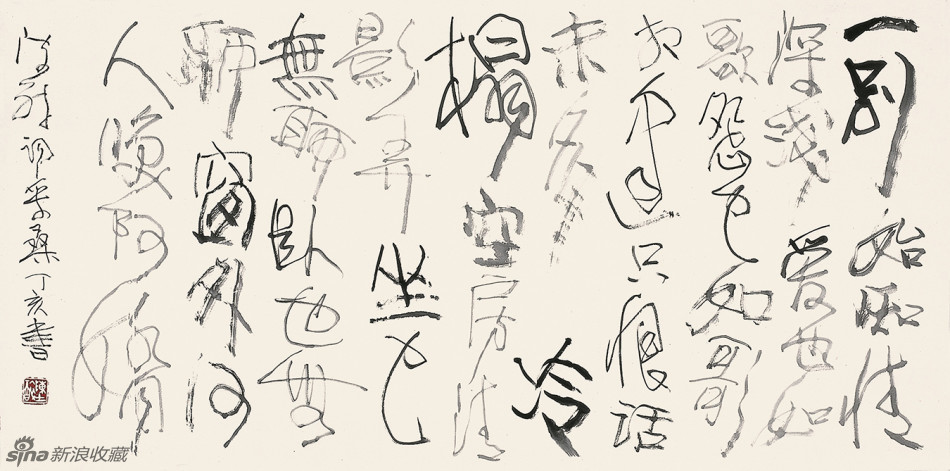 一别始知情
深淺爱也如
歌怨也如歌
只恨話
未多冷
榻空房清
影弄坐也
無聊卧也無
聊窗外何
人唤阿
詞采桑丁亥書
sina新浪收藏